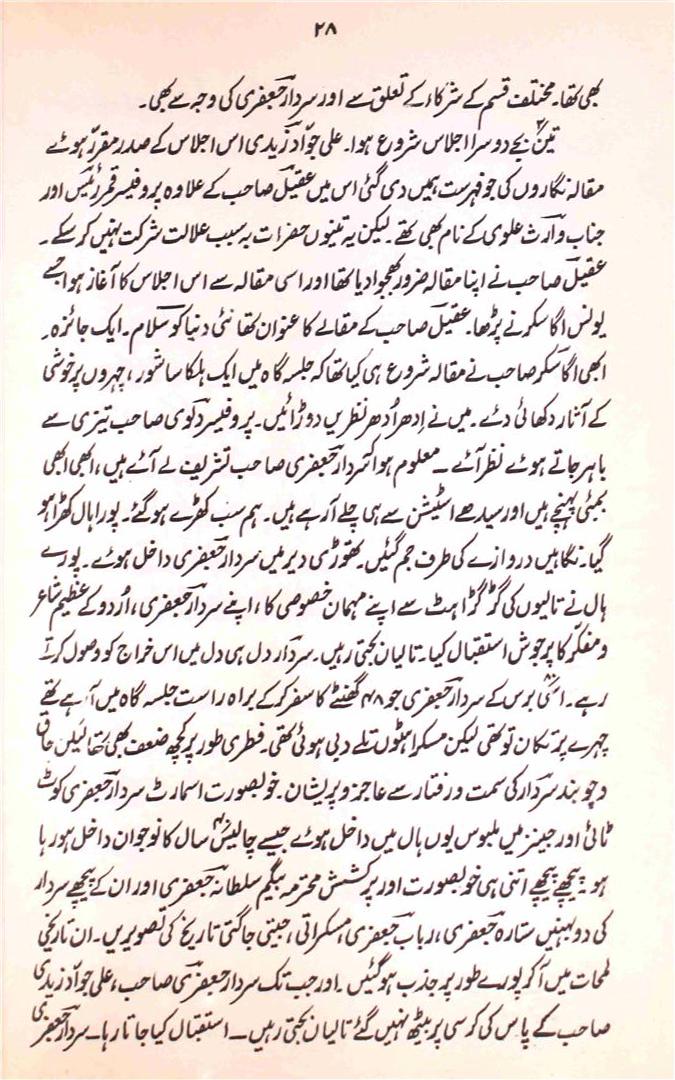 ۲۸
بھی تھا۔ مختلف قسم کے شرکاء کے تعلق سے اور سردار جعفری کی وجہ سے بھی۔
تین بجے دوسرا اجلاس شروع ہوا۔ علی جواد زیدی اس اجلاس کے صدر مقرر ہوئے
مقالہ نگاروں کی جو فہرست ہمیں دی گئی اس میں عقیل صاحب کے علاوہ پروفیسر قمر رئیس اور
جناب وارث علوی کے نام بھی تھے۔ لیکن یہ تینوں حضرات بہ سبب علالت شرکت نہیں کر سکے۔
عقیل صاحب نے اپنا مقالہ ضرور بھجوا دیا تھا اور اسی مقالہ سے اس اجلاس کا آغاز ہوا جسے
یونس اگاسکر نے پڑھا۔ عقیل صاحب کے مقالے کا عنوان تھا نئی دنیا کو سلام۔ ایک جائزہ۔
ابھی اگاسکر صاحب نے مقالہ شروع ہی کیا تھا کہ جلسہ گاہ میں ایک ہلکا سا شور، چہروں پر خوشی
کے آثار دکھائی دئے۔ میں نے اِدھر اُدھر نظریں دوڑائیں۔ پروفیسر دلوی صاحب تیزی سے
باہر جاتے ہوئے نظر آئے ــ معلوم ہوا کہ سردار جعفری صاحب تشریف لے آئے ہیں، ابھی ابھی
بمبئی پہنچے ہیں اور سیدھے اسٹیشن سے ہی چلے آ رہے ہیں۔ ہم سب کھڑے ہو گئے۔ پورا ہال کھڑا ہو
گیا۔ نگاہیں دروازے کی طرف جم گئیں۔ تھوڑی دیر میں سردار جعفری داخل ہوئے۔ پورے
ہال نے تالیوں کی گڑگڑاہٹ سے اپنے مہمان خصوصی کا، اپنے سردار جعفری، اُردو کے عظیم شاعر
و مفکر کا پرجوش استقبال کیا۔ تالیاں بجتی رہیں۔ سردار دل ہی دل میں اس خراج کو وصول کرتے
رہے۔ اسّی برس کے سردار جعفری جو ۴۸ گھنٹے کا سفر کر کے براہ راست جلسہ گاہ میں آ رہے تھے
چہرے پر تکان تو تھی لیکن مسکراہٹوں تلے دبی ہوئی تھی۔ فطری طور پر کچھ ضعف بھی تھا لیکن چاق
و چوبند سردار کی سمت و رفتار سے عاجز و پریشان۔ خوبصورت اسمارٹ سردار جعفری کوٹ
ٹائی اور جینز میں ملبوس یوں ہال میں داخل ہوئے جیسے چالیس سال کا نوجوان داخل ہو رہا
ہو۔ پیچھے پیچھے اتنی ہی خوبصورت اور پرکشش محترمہ بیگم سلطانہ جعفری اور ان کے پیچھے سردار
کی دو بہنیں ستارہ جعفری، رباب جعفری، مسکراتی، جیتی جاگتی تاریخ کی تصویریں۔ ان تاریخی
لمحات میں آ کر پورے طور پر جذب ہو گئیں۔ اور جب تک سردار جعفری صاحب، علی جواد زیدی
صاحب کے پاس کی کرسی پر بیٹھ نہیں گئے تالیاں بجتی رہیں ــ استقبال کیا جاتا رہا ــ سردار جعفری